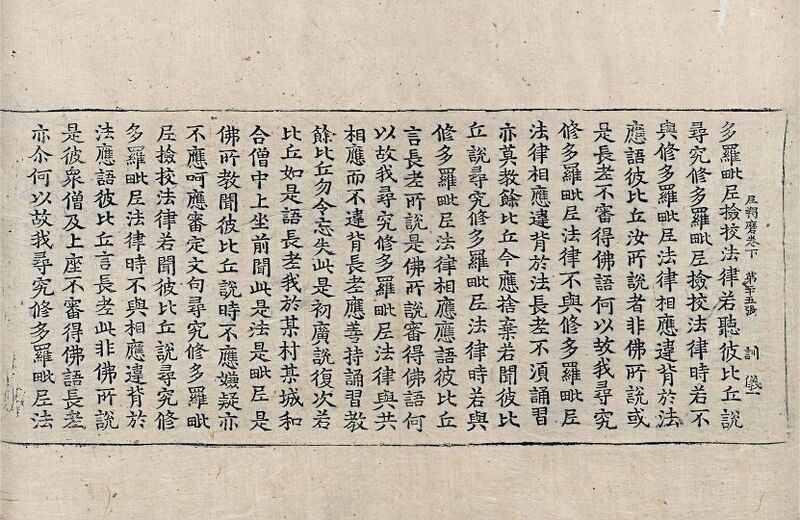 尼羯磨卷下 第二十五張 訓 儀一
多羅毗尼撿挍法律若聽彼比丘說
尋究修多羅毗尼撿挍法律時若不
與修多羅毗尼法律相應違背於法
應語彼比丘汝所說者非佛所說或
是長老不審得佛語何以故我尋究
修多羅毗尼法律不與修多羅毗尼
法律相應違背於法長老不湏誦習
亦莫教餘比丘今應捨棄若聞彼比
丘說尋究修多羅毗尼法律時若與
修多羅毗尼法律相應應語彼比丘
言長老所說是佛所說審得佛語何
以故我尋究修多羅毗尼法律與共
相應而不違背長老應善持誦習教
餘比丘勿令忘失此是初廣說復次若
比丘如是語長老我於某村某城和
合僧中上坐前聞此是法是毗尼是
佛所教聞彼比丘說時不應嫌疑亦
不應呵應審定文句尋究修多羅毗
尼撿挍法律若聞彼比丘說尋究修
多羅毗尼法律時不與相應違背於
法應語彼比丘言長老此非佛所說
是彼衆僧及上座不審得佛語長老
亦尒何以故我尋究修多羅毗尼法